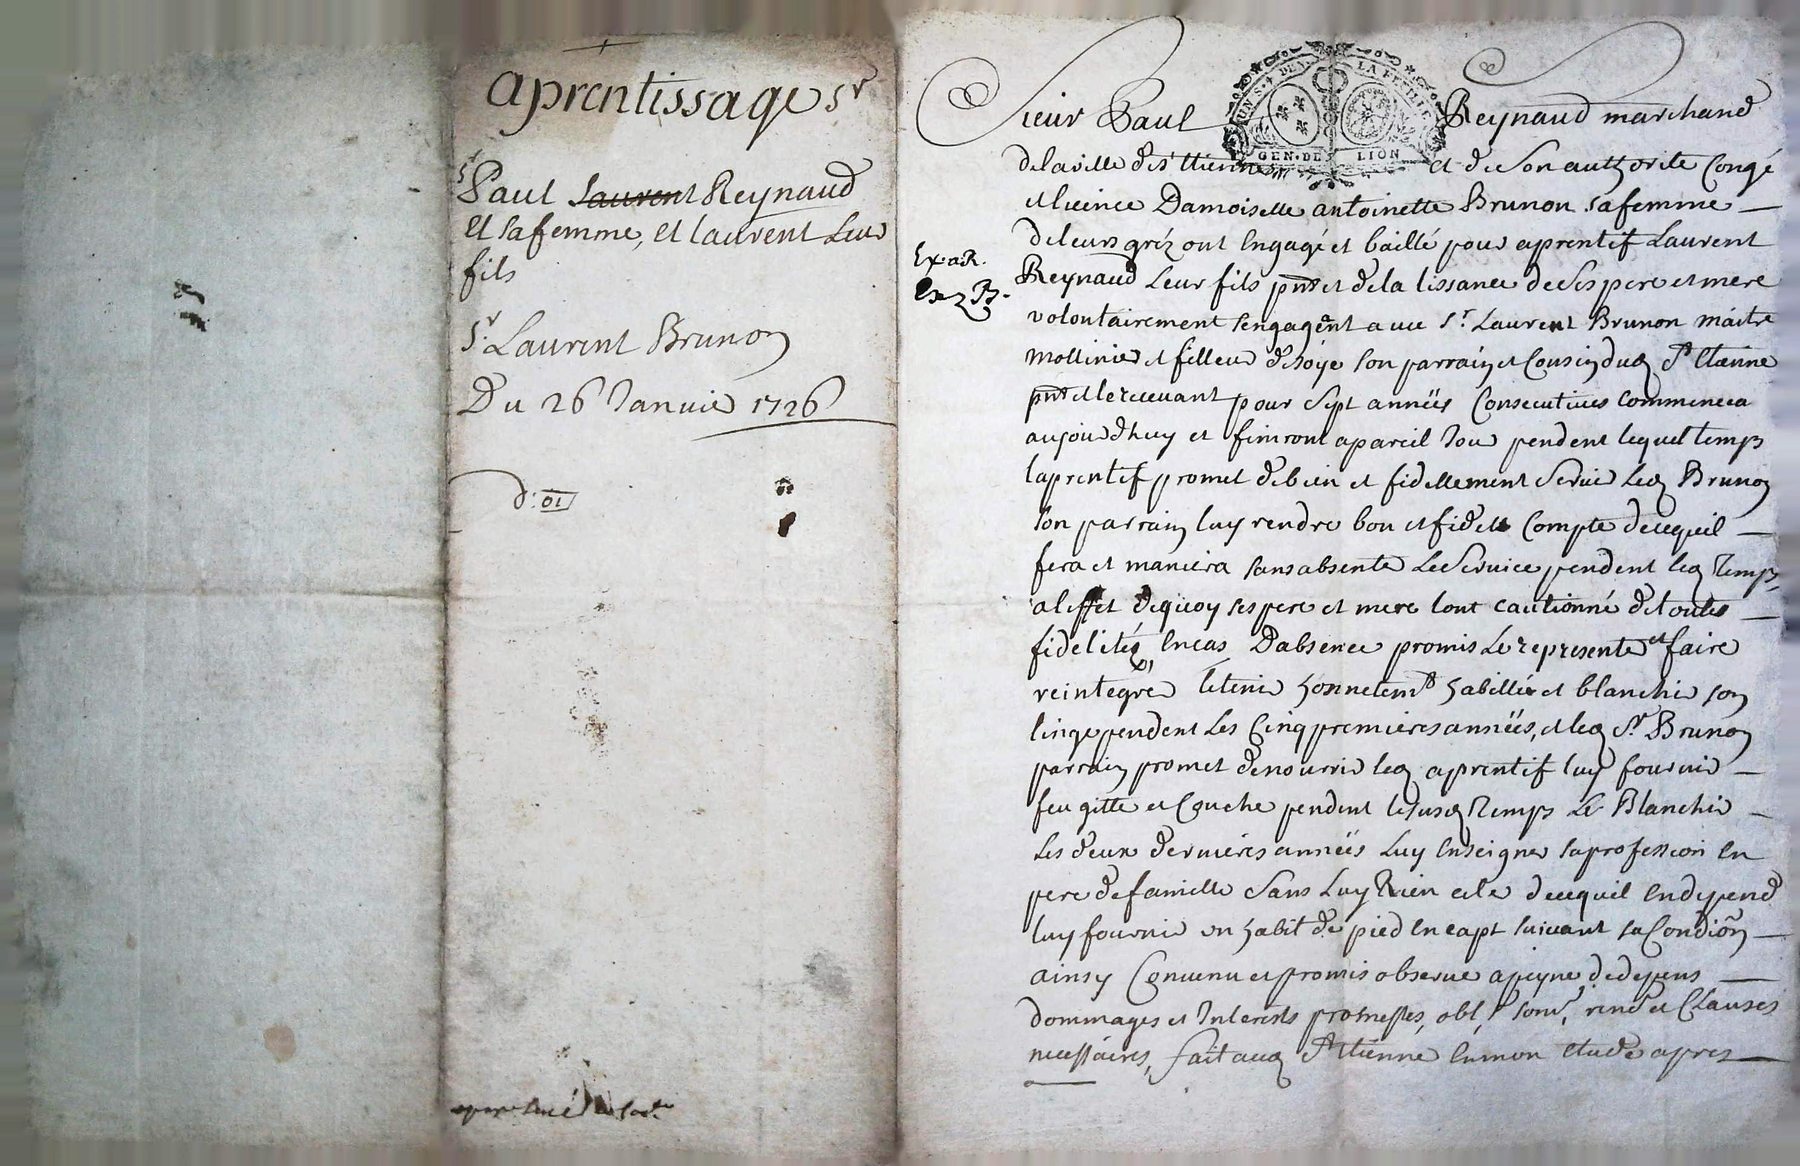 aprentissage sr
sr Paul Laurent Reynaud
et sa femme, et laurent Leur
fils
Sr. Laurent Brunon
Du 26 Janvier 1726
GEN. DE LION
Sieur Paul Reynaud marchand
de la ville de st Etienne et de son authorite Congé
et licence Damoiselle antoinette Brunon sa femme
de leurs gréz ont Engagé et baillé pour aprentif Laurent
Reynaud Leur fils pnt et de la lissance de ses pere et mere
volontairement sengageant avec sr. Laurent Brunon maitre
mollinier et filleur de soye son parrain et Cousin dud St Etienne
pnt et lerecevant pour sept années Consecutives Commencea
aujourdhuy et finiront apareil Jour pendent lequel temps
laprentif promet de bien et fidellement servir led Brunon
son parrain luy rendre bon et fidelle Compte de cequil
fera et maniera sans absenter le service pendent led temps
a leffet dequoy ses pere et mere lont cautionné de toutes
fidelitez, En cas Dabsence promis Le representer et faire
reintegrer le tenir honnetemt habillié et blanchir son
linge pendent Les Cinq premieres années, et led Sr Brunon
parrain promet de nourrir led aprentif luy fournir
feu gitte et Couche pendent le susd temps Le Blanchir
Les deux dernieres années Luy Enseigner sa profession En
pere de famille sans Luy Rien celer de cequil En depend
luy fournir un habit de pied En capt suivant sa Condion
ainsy Convenu et promis observer a peyne de depens
dommages et Interests promesses, obl, soum, renon et Clauses
necessaires, fait aud St Etienne En mon etude apres